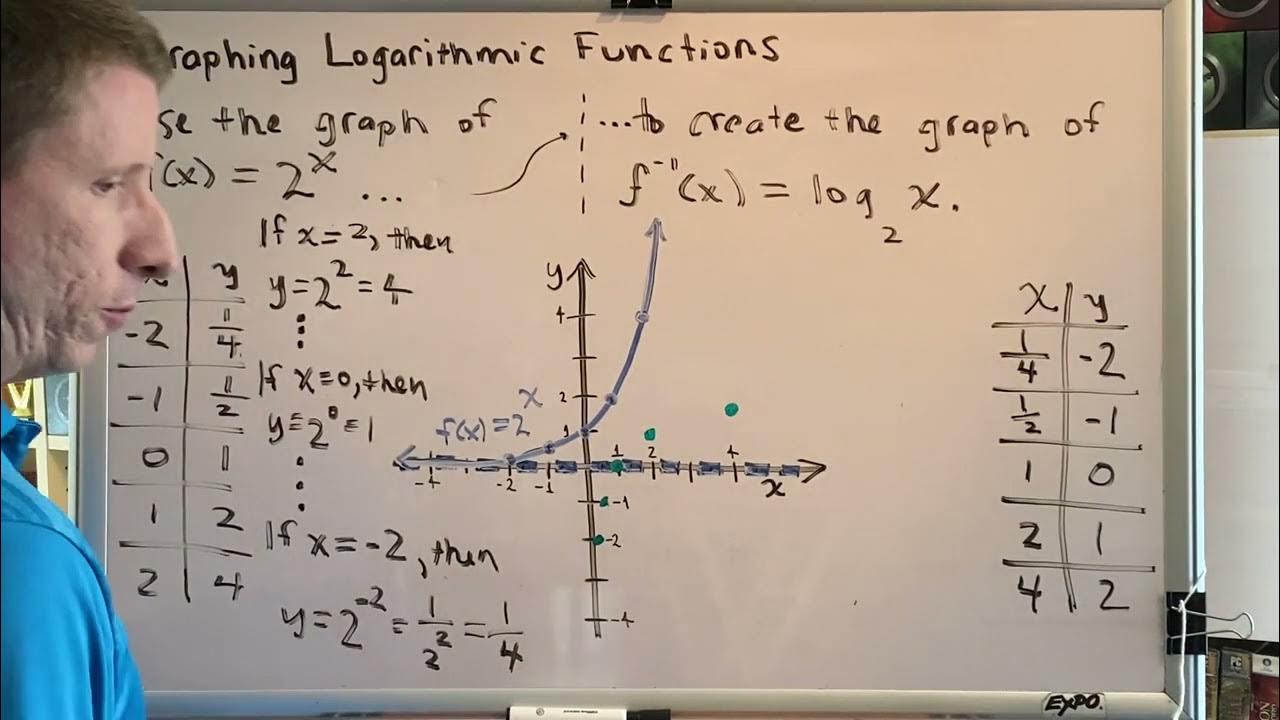 raphing Logarithmic Functions
se the graph of
(x) = 2^x ...
...to create the graph of
f⁻¹(x) = log₂ x.
If x=2, then
y=2²=4
If x=0, then
y=2⁰=1
If x=-2, then
y=2⁻²=1/2²=1/4
x y
-2 1/4
-1 1/2
0 1
1 2
2 4
y
4
2
1
f(x)=2^x
-4 -2 -1 1 2 4
x
-1
-2
-4
x y
1/4 -2
1/2 -1
1 0
2 1
4 2
EXPO.
PC